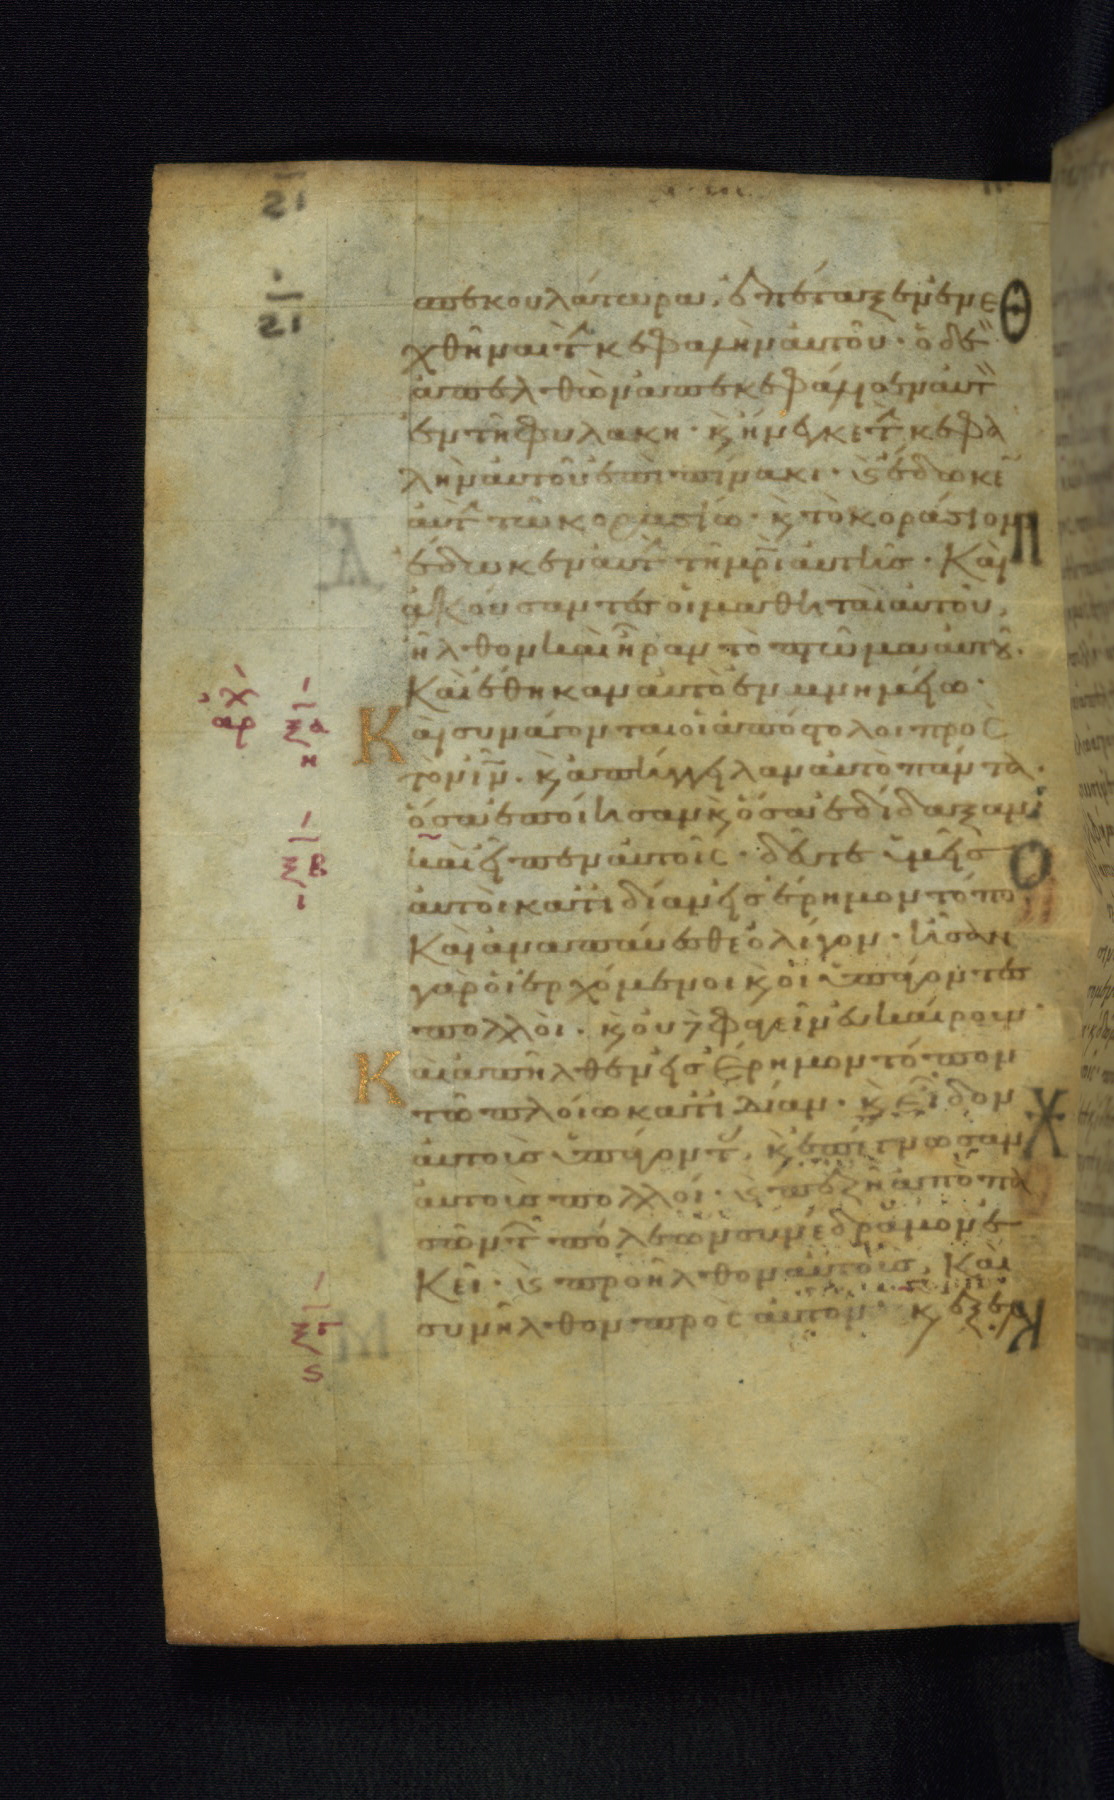 σπεκουλάτωρα, ἐπέταξεν ἐνε
χθῆναι τ̂ κεφαλὴν αὐτοῦ· ὁ δὲ
ἀπελθὼν ἀπεκεφάλισεν αὐτ
ἐν τῆ φυλακῆ· κ ἤνεγκε τ̂ κεφα
λὴν αὐτοῦ ἐπι πίνακι· κ ἔδωκε
αὐτ τῶ κορασίω· κ τὸ κοράσιον
ἔδωκεν αὐτ τῆ μρὶ αὐτῆς· Καὶ
ἀκούσαντες οἱ μαθηταὶ αὐτοῦ,
ἦλθον καὶ ἦραν τὸ πτῶμα αὐτοῦ.
Καὶ ἔθηκαν αὐτὸ ἐν μνημείω·
Καὶ συνάγονται οἱ ἀπόστολοι προς
τὸν ιν· κ ἀπήγγειλαν αὐτῶ πάντα·
ὅσα ἐποίησαν κ ὅσα ἐδίδαξαν·
καὶ εἶπεν αὐτοῖς· δεῦτε ὑμεῖς
αὐτοὶ κατ ιδίαν εἰς ἔρημον τόπο
Καὶ ἀναπαύσθε ὀλίγον· ἦσαν
γὰρ οἱ ἐρχόμενοι κ οἱ ὑπάγοντες
πολλοὶ· κ οὐδὲ φαγεῖν εὐκαίρουν·
Καὶ ἀπῆλθεν εἰς Ἔρημον τόπον
τῶ πλοίω κατ ιδίαν· κ εἶδον
αὐτοὺς ὑπάγοντ, κ ἐπέγνωσαν
αὐτοὺς πολλοί· κ πεζῆ ἀπὸ πα
σῶν τ̂ πόλεων συνέδραμον ἐ
Κεῖ· κ προῆλθον αὐτοὺς, Καὶ
συνῆλθον προς αὐτον· κ ἐξελ
ἀρχ
ξα
η
ξβ
ι
ξγ
ς